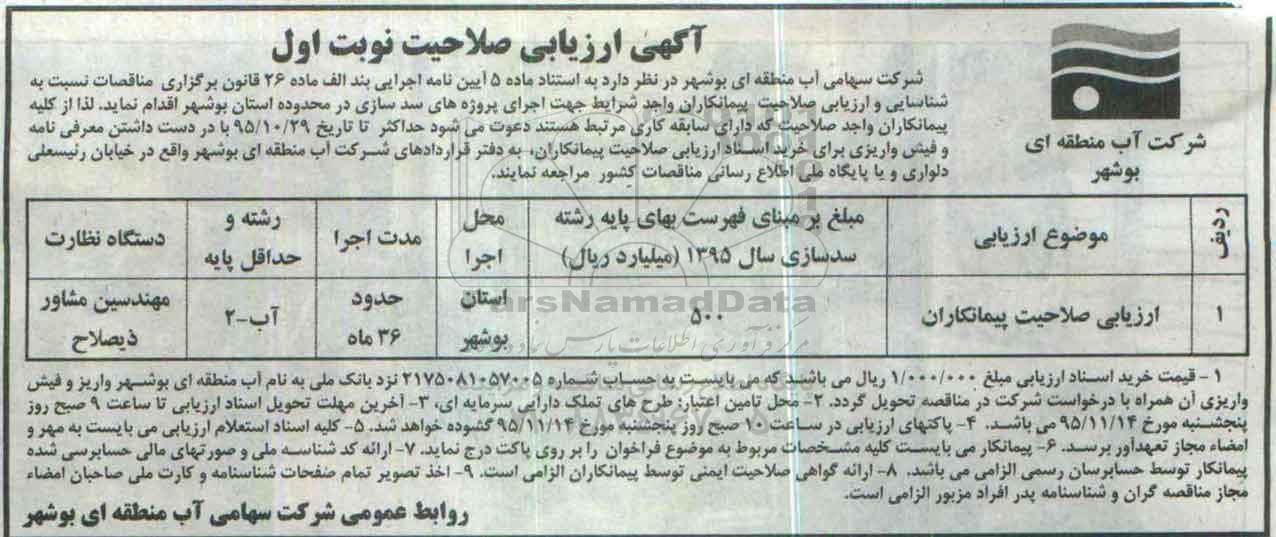 آگهی ارزیابی صلاحیت نوبت اول
شرکت آب منطقه ای
بوشهر
شرکت سهامی آب منطقه ای بوشهر در نظر دارد به استناد ماده ۵ آیین نامه اجرایی بند الف ماده ۲۶ قانون برگزاری مناقصات نسبت به
شناسایی و ارزیابی صلاحیت پیمانکاران واجد شرایط جهت اجرای پروژه های سد سازی در محدوده استان بوشهر اقدام نماید. لذا از کلیه
پیمانکاران واجد صلاحیت که دارای سابقه کاری مرتبط هستند دعوت می شود حداکثر تا تاریخ ۹۵/۱۰/۲۹ با در دست داشتن معرفی نامه
و فیش واریزی برای خرید اسناد ارزیابی صلاحیت پیمانکاران، به دفتر قراردادهای شرکت آب منطقه ای بوشهر واقع در خیابان رئیسعلی
دلواری و یا پایگاه ملی اطلاع رسانی مناقصات کشور مراجعه نمایند.
ردیف
موضوع ارزیابی
مبلغ بر مبنای فهرست بهای پایه رشته
سدسازی سال ۱۳۹۵ (میلیارد ریال)
محل
اجرا
مدت اجرا
رشته و
حداقل پایه
دستگاه نظارت
۱
ارزیابی صلاحیت پیمانکاران
۵۰۰
استان
بوشهر
حدود
۳۶ ماه
آب-۲
مهندسین مشاور
ذیصلاح
ParsNamadData
۱ - قیمت خرید اسناد ارزیابی مبلغ ۱/۰۰۰/۰۰۰ ریال می باشد که می بایست به حساب شماره ۲۱۷۵۰۸۱۰۵۷۰۰۵ نزد بانک ملی به نام آب منطقه ای بوشهر واریز و فیش
واریزی آن همراه با درخواست شرکت در مناقصه تحویل گردد. ۲- محل تامین اعتبار: طرح های تملک دارایی سرمایه ای، ۳- آخرین مهلت تحویل اسناد ارزیابی تا ساعت ۹ صبح روز
پنجشنبه مورخ ۹۵/۱۱/۱۴ می باشد. ۴- پاکتهای ارزیابی در ساعت ۱۰ صبح روز پنجشنبه مورخ ۹۵/۱۱/۱۴ گشوده خواهد شد. ۵- کلیه اسناد استعلام ارزیابی می بایست به مهر و
امضاء مجاز تعهدآور برسد. ۶- پیمانکار می بایست کلیه مشخصات مربوط به موضوع فراخوان را بر روی پاکت درج نماید. ۷- ارائه کد شناسه ملی و صورتهای مالی حسابرسی شده
پیمانکار توسط حسابرسان رسمی الزامی می باشد. ۸- ارائه گواهی صلاحیت ایمنی توسط پیمانکاران الزامی است. ۹- اخذ تصویر تمام صفحات شناسنامه و کارت ملی صاحبان امضاء
مجاز مناقصه گران و شناسنامه پدر افراد مزبور الزامی است.
روابط عمومی شرکت سهامی آب منطقه ای بوشهر